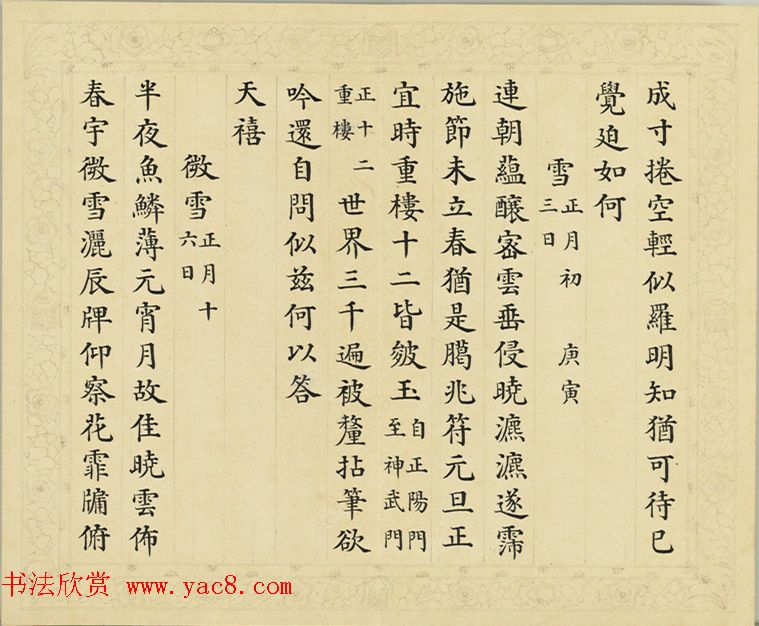 成寸捲空輕似羅明知猶可待已
覺廹如何
雪正月初三日 庚寅
連朝蘊釀宻雲垂侵曉瀌瀌遂霈
施節未立春猶是臈兆符元旦正
宜時重樓十二皆皴玉自正陽門至神武門
正十二重樓世界三千遍被釐拈筆欲
吟還自問似兹何以答
天禧
微雪正月十六日
半夜魚鱗薄元宵月故佳曉雲佈
春宇微雪灑辰牌仰察花霏牖俯
书法欣赏 www.yac8.com